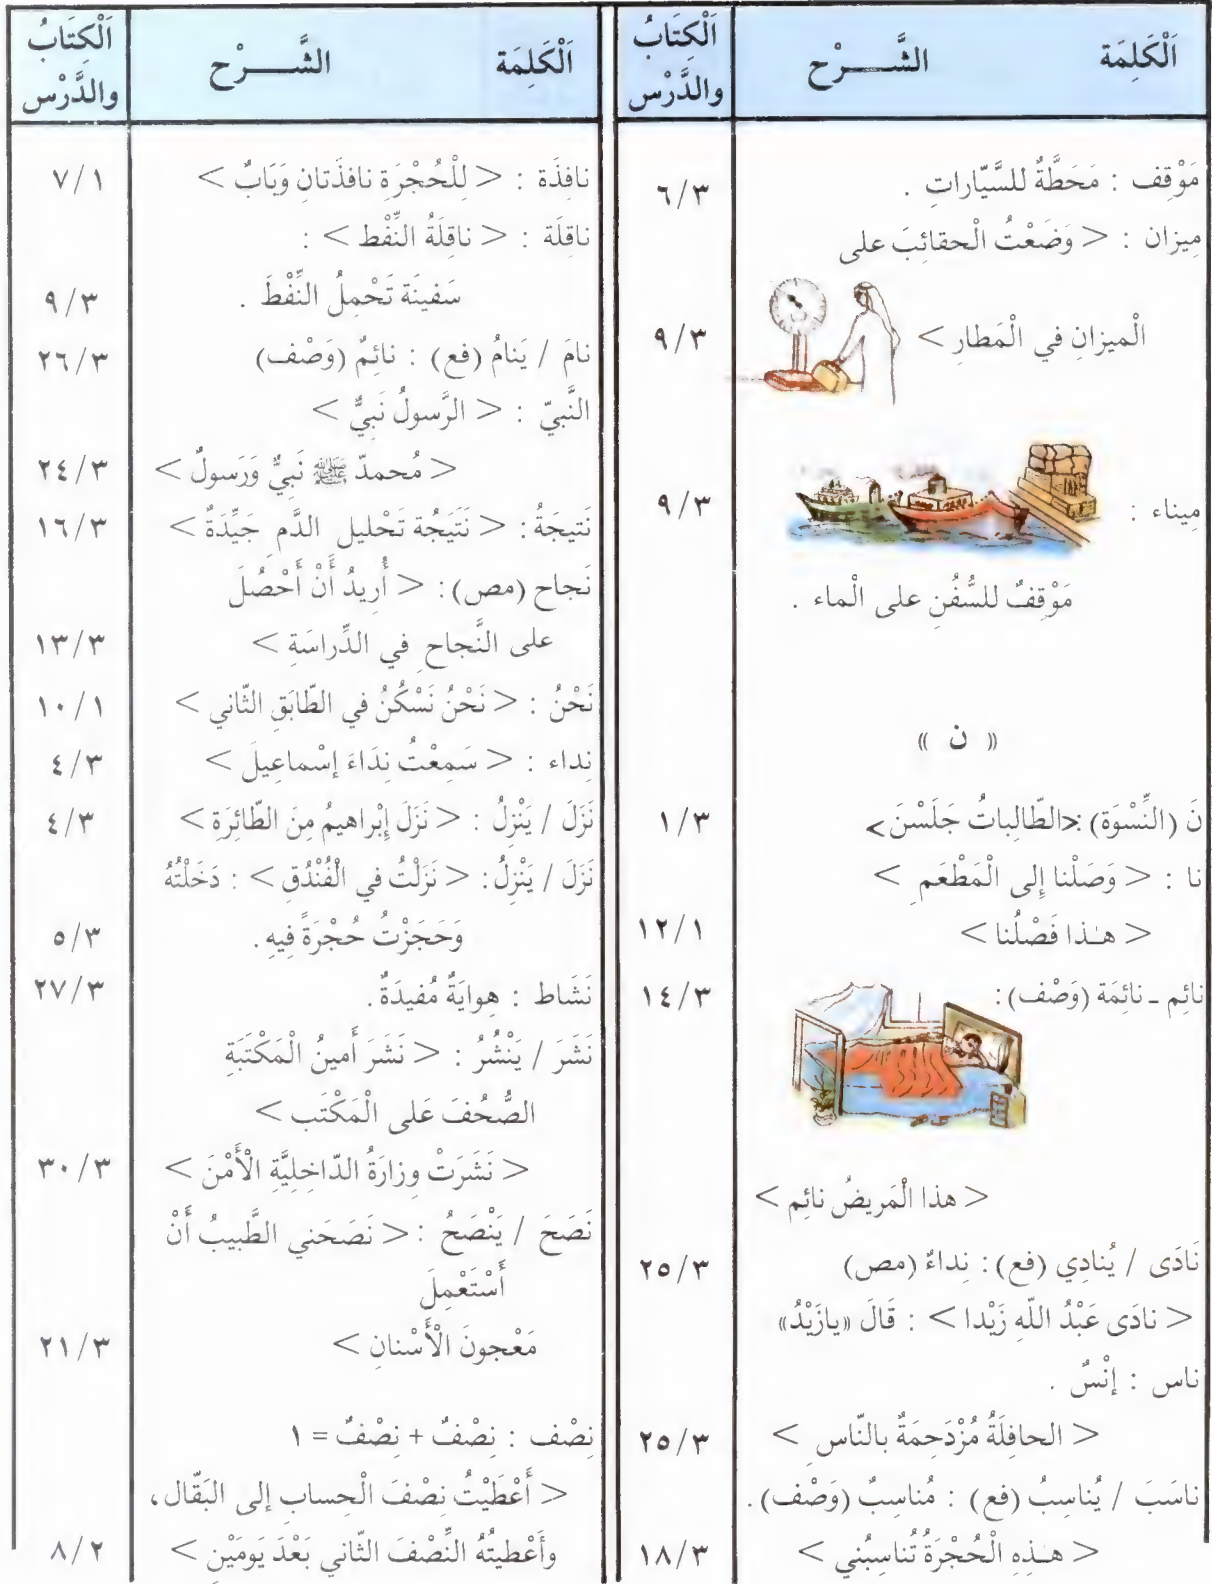 اَلْكَلِمَة الشَّـــرْح اَلْكِتَابُ والدَّرْس
مَوْقِف : مَحَطَّةٌ للسَّيّاراتِ . ٦/٣
مِيزان : < وَضَعْتُ الْحقائِبَ على
الْميزانِ في الْمَطارِ > ٩/٣
مِيناء : ٩/٣
مَوْقِفٌ للسُّفُنِ على الْماء .
« ن »
نَ (النِّسْوَة) :<الطّالِباتُ جَلَسْنَ> ١/٣
نا : < وَصَلْنا إِلى الْمَطْعَمِ >
< هـٰذا فَصْلُنا > ١٢/١
نائِم ـ نائِمَة (وَصْف) : ١٤/٣
< هذا الْمَريضُ نائِم >
نَادَى / يُنادِي (فع) : نِداءٌ (مص) ٢٥/٣
< نادَى عَبْدُ اللّهِ زَيْدا > : قَالَ «يازَيْدُ»
ناس : إِنْسٌ .
< الحافِلَةُ مُزْدَحِمَةٌ بالنّاسِ > ٢٥/٣
ناسَبَ / يُناسِبُ (فع) : مُناسِبٌ (وَصْف) .
< هـٰذِهِ الْحُجْرَةُ تُناسِبُني > ١٨/٣
اَلْكَلِمَة الشَّـــرْح اَلْكِتَابُ والدَّرْس
نافِذَة : < لِلْحُجْرَةِ نافذَتانِ وَبَابٌ > ٧/١
ناقِلَة : < ناقِلَةُ النِّفْط > :
سَفينَة تَحْمِلُ النِّفْطَ . ٩/٣
نامَ / يَنامُ (فع) : نائِمٌ (وَصْف) ٢٦/٣
النَّبيّ : < الرَّسولُ نَبيٌّ >
< مُحمدّ ﷺ نَبيٌّ وَرَسولٌ > ٢٤/٣
نَتيجَةُ : < نَتَيجُة تَحْليل الدَّم جَيِّدَةٌ > ١٦/٣
نَجاح (مص) : < أُريدُ أَنْ أَحْصُلَ
على النَّجاحِ في الدِّراسَةِ > ١٣/٣
نَحْنُ : < نَحْنُ نَسْكُنُ في الطّابَقِ الثّاني > ١٠/١
نِداء : < سَمِعْتُ نِدَاءَ إسْماعِيلَ > ٤/٣
نَزَلَ / يَنْزِلُ : < نَزَلَ إِبْراهيمُ مِنَ الطّائِرَةِ > ٤/٣
نَزَلَ / يَنْزِلُ : < نَزَلْتُ في الْفُنْدُقِ > : دَخَلْتُهُ
وَحَجَزْتُ حُجْرَةً فيهِ . ٥/٣
نَشَاط : هِوايَةٌ مُفيدَةٌ . ٢٧/٣
نَشَرَ / يَنْشُرُ : < نَشَرَ أَمينُ الْمَكْتَبَةِ
الصُّحُفَ عَلى الْمَكْتَب >
< نَشَرَتْ وِزارَةُ الدّاخِلِيَّةِ الْأَمْنَ > ٣٠/٣
نَصَحَ / يَنْصَحُ : < نَصَحَني الطَّبيبُ أَنْ
أَسْتَعْمِلَ
مَعْجونَ الْأَسْنانِ > ٢١/٣
نِصْف : نِصْفٌ + نِصْفٌ = ١
< أَعْطَيْتُ نِصْفَ الْحِسابِ إلى البَقّال ،
وأَعْطيتُهُ النِّصْفَ الثّاني بَعْدَ يَومَيْنِ > ٨/٢